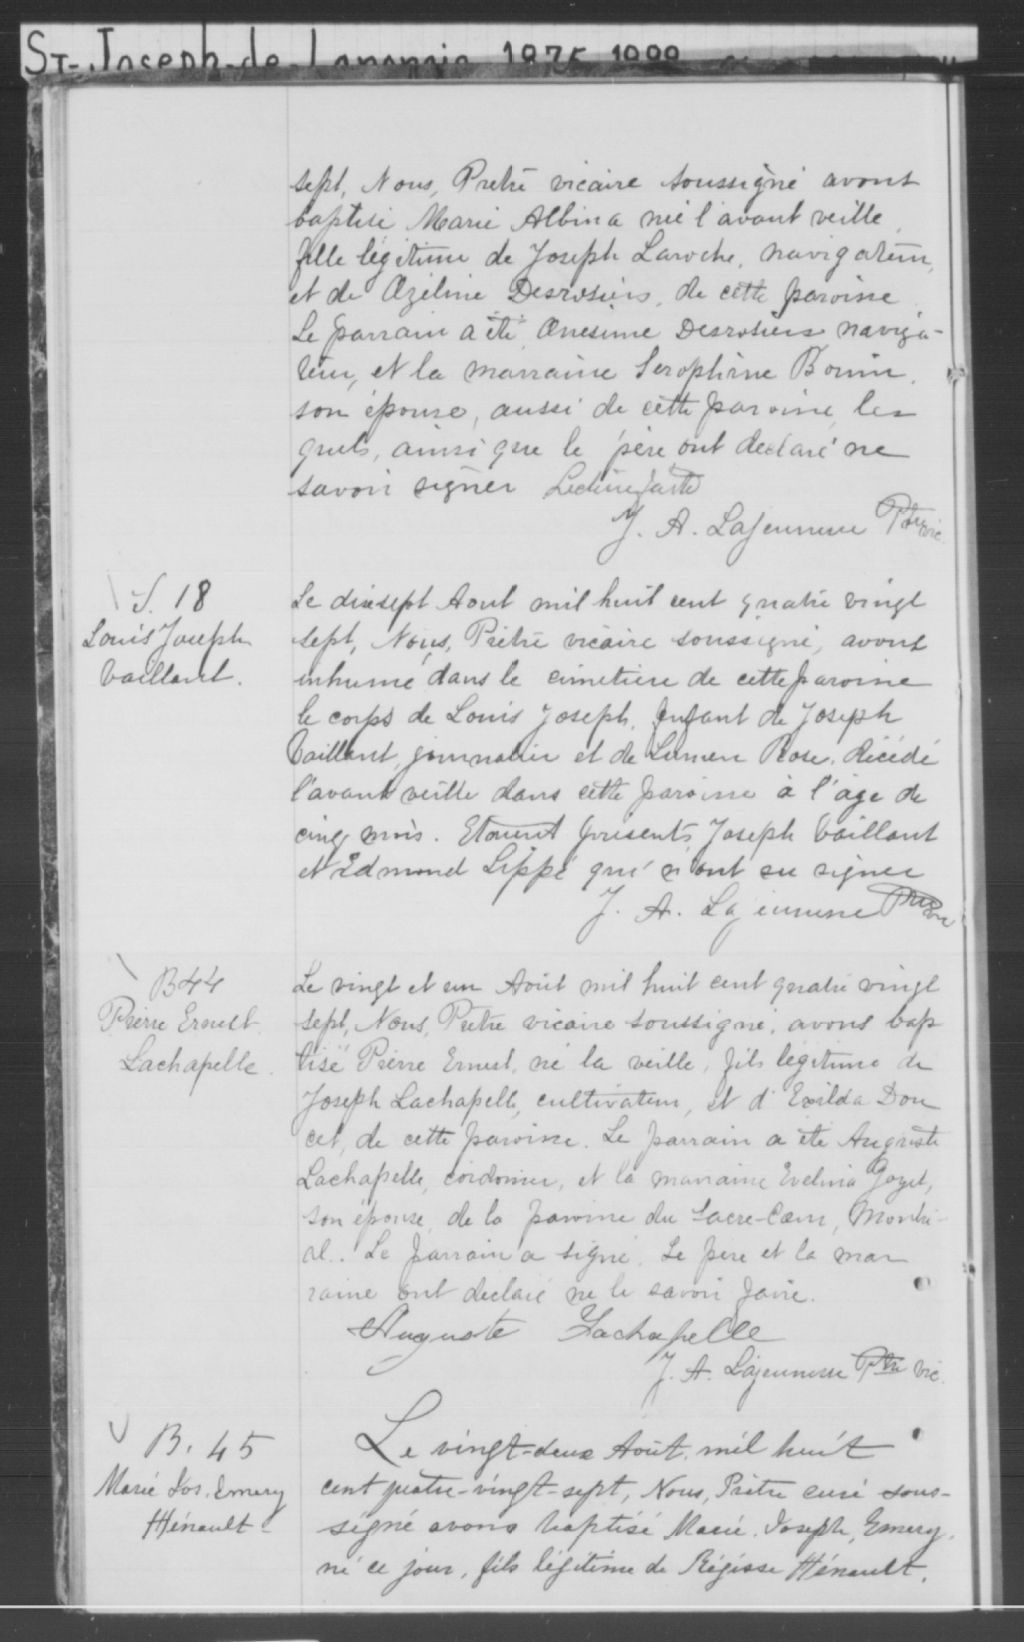 St-Joseph-de-Lanoraie 1875 1888
sept, Nous, Prêtre vicaire soussigné avons
baptisé Marie Albina née l'avant veille,
fille légitime de Joseph Laroche, navigateur,
et de Ozéline Desrosiers, de cette paroisse.
Le parrain a été Onesime Desrosiers naviga-
teur, et la marraine Seraphine Bonin,
son épouse, aussi de cette paroisse, les
quels, ainsi que le père ont declaré ne
savoir signer Lecture faite
J. A. Lajeunesse Ptre vic.
S. 18
Louis Joseph
Vaillant.
Le dixsept Aout mil huit cent quatre vingt
sept, Nous, Prêtre vicaire soussigné, avons
inhumé dans le cimetière de cette paroisse
le corps de Louis Joseph, Enfant de Joseph
Vaillant, journalier et de Rose, décédé
l'avant veille dans cette paroisse à l'âge de
cinq mois. Etaient présents, Joseph Vaillant
et Edmond Lippé qui n'ont su signer
J. A. Lajeunesse Ptre vic
B 44
Pierre Ernest
Lachapelle.
Le vingt et un Août mil huit cent quatre vingt
sept, Nous, Prêtre vicaire soussigné, avons bap
tisé Pierre Ernest, né la veille, fils légitime de
Joseph Lachapelle, cultivateur, et d'Exilda Dou
cet, de cette paroisse. Le parrain a été Auguste
Lachapelle, cordonier, et la marraine Evelina Goyet,
son épouse, de la paroisse du Sacre-Cœur, Montré-
al. Le parrain a signé. Le père et la mar
raine ont declaré ne le savoir faire.
Auguste Lachapelle
J. A. Lajeunesse Ptre vic.
B. 45
Marie Jos. Emery
Hénault
Le vingt-deux Août mil huit
cent quatre-vingt-sept, Nous, Prêtre curé sous-
signé avons baptisé Marie, Joseph, Emery,
né ce jour, fils légitime de Régisse Hénault,